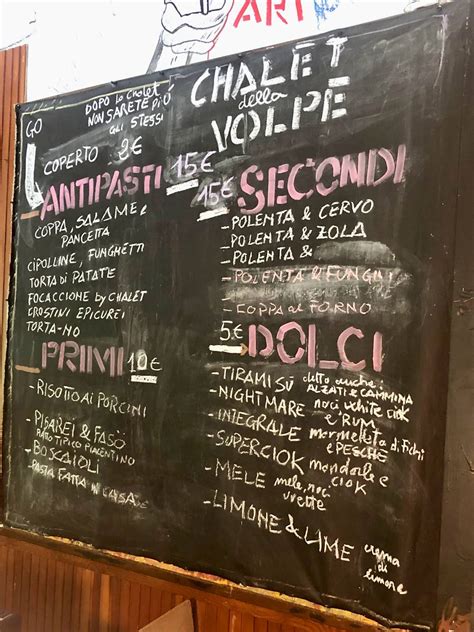 ART
CHALET
della
VOLPE
GO
DOPO lo CHALET
NON SARETE PIÚ
GLI STESSI
COPERTO 2€
ANTIPASTI 15€
COPPA, SALAME,
PANCETTA
CIPOLLINE, FUNGHETTI
TORTA DI PATATE
FOCACCIONE by CHALET
CROSTINI EPICUREI
TORTA-NO
PRIMI 10€
- RISOTTO AI PORCINI
- PISAREI & FASÖ
PIATTO TIPICO PIACENTINO
- BOSCAIOLI
PASTA FATTA IN CASA
15€ SECONDI
- POLENTA & CERVO
- POLENTA & ZOLA
- POLENTA &
- POLENTA & FUNGHI
- COPPA al FORNO
5€ DOLCI
- TIRAMI SU detto anche:
ALZATI & CAMMINA
- NIGHTMARE noci white ciok
e RUM
- INTEGRALE marmellata di fichi
e PESCHE
- SUPERCIOK mandorle e
CIOK
- MELE mele, noci
uvette
- LIMONE & LIME crema
di
limone